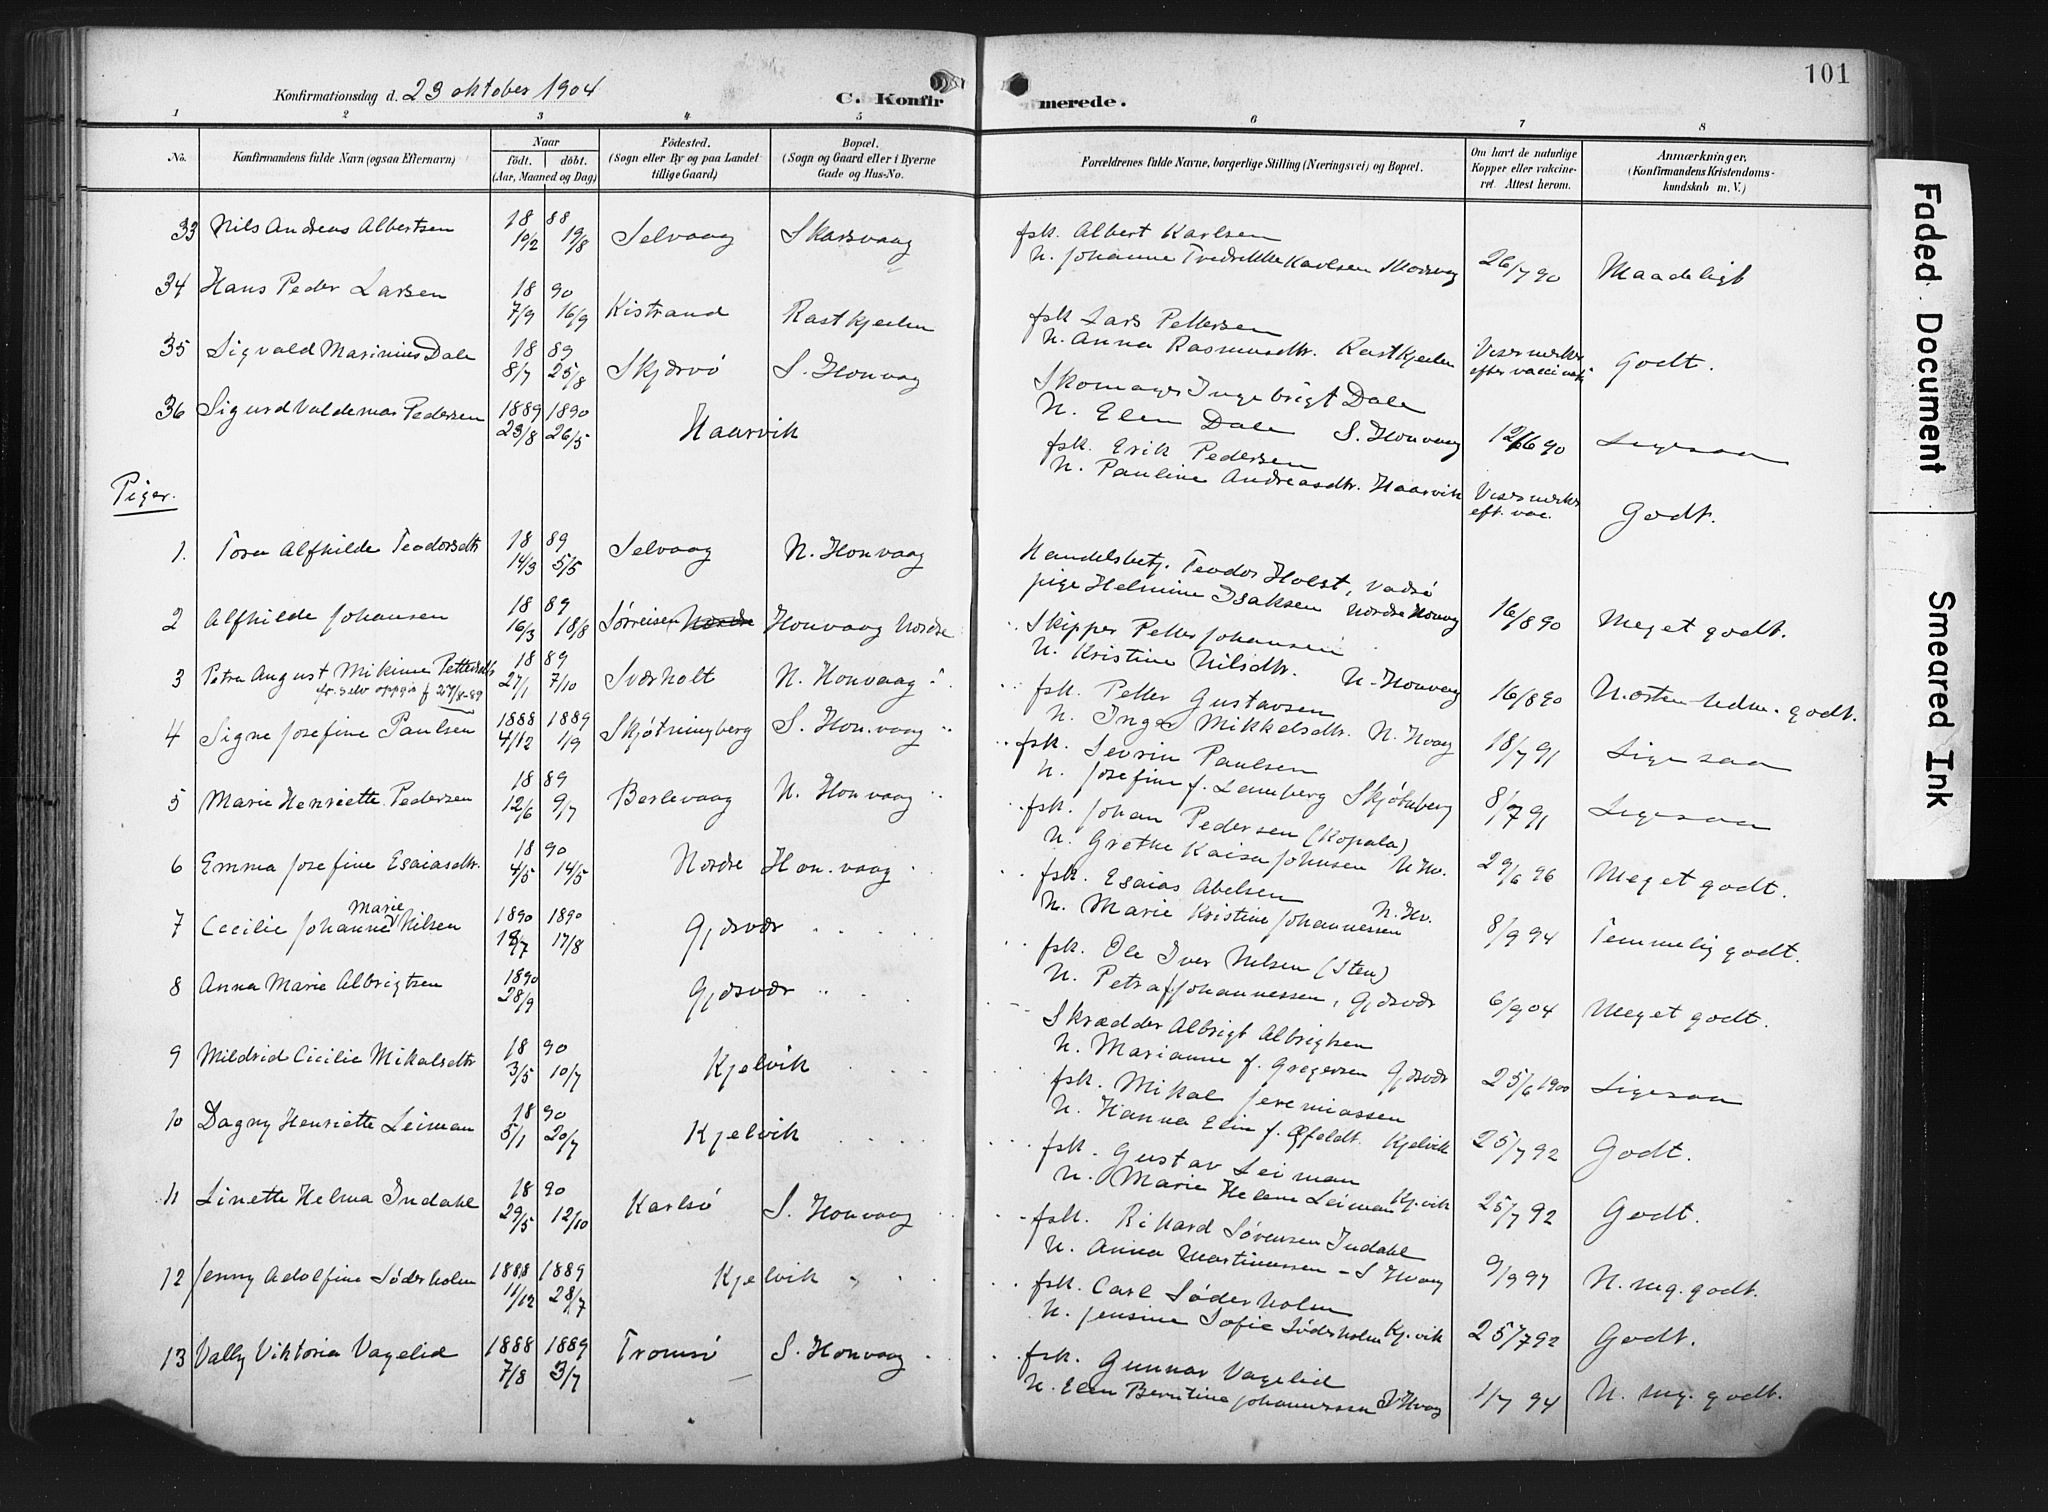 101
Konfirmationsdag d. 23 oktober 1904
C. Konfirmerede.
1 2 3 4 5 6 7 8
No. Konfirmandens fulde Navn (ogsaa Efternavn) Naar født. døbt. (Aar, Maaned og Dag) Fødested. (Sogn eller By og paa Landet tillige Gaard) Bopæl. (Sogn og Gaard eller i Byerne Gade og Hus-No. Forældrenes fulde Navne, borgerlige Stilling (Næringsvei) og Bopæl. Om havt de naturlige Kopper eller vaccineret. Attest herom. Anmærkninger. (Konfirmandens Kristendomskundskab m. V.)
33 Nils Andreas Albertsen 18 88 10/2 19/8 Selvaag Skarsvaag fsk. Albert Karlsen
H. Johanne Fredrikke Karlsen Skarsvag 26/7 90 Maadeligt
34 Hans Peder Larsen 18 90 7/9 16/9 Kistrand Kastkjeilen fsk Lars Pettersen
H. Anna Rasmusdtr. Kastkjeilen Viser merker efter vaccinat. Godt.
35 Sigvald Marinius Dale 18 89 8/7 25/8 Skjærvö S. Honvaag Skomager Ingebrigt Dale
H. Elen Dale S. Honvaag 12/6 90 Ligesaa
36 Sigurd Valdemar Pedersen 1889 1890 23/8 26/5 Haarvik fsk. Erik Pedersen
H. Pauline Andreasdtr. Haarvik Viser merker eft. vac. Godt.
Piger.
1. Tora Alfhilde Teodorsdtr 18 89 14/3 5/5 Selvaag N. Honvaag Handelsbetj. Teodor Holst, Vadsö
pige Helmine Isaksen Nordre Honvag 16/8 90 Meget godt.
2 Alfhilde Johansen 18 89 16/3 18/8 Sørreisen Nordre Honvaag Nordre Skipper Petter Johansen
H. Kristine Nilsdtr. N. Honvaag 16/8 90 N. osten-uden. godt.
3 Petra August Mikine Pettersdtr 18 89 27/1 7/10 Sværholt N. Honvaag fsk. Petter Gustavsen
fr. selv oppgir f 27/8-89
H. Inger Mikkelsdtr. N. Hvaag 18/7 91 Ligesaa
4 Signe Josefine Paulsen 1888 1889 4/12 1/9 Skjøtningberg S. Honvaag fsk. Sevrin Paulsen
H. Josefine f. Lenneberg Skjøtnberg 8/7 91 Ligesaa
5 Marie Henriette Pedersen 18 89 12/6 9/7 Berlevaag N. Honvaag fsk. Johan Pedersen (Kopala)
H. Grethe Kaisa Johnsen N. Hv. 29/6 96 Meget godt.
6 Emma Josefine Esaiasdtr. 18 90 4/5 14/5 Nordre Honvaag fsk. Esaias Abelsen
H. Marie Kristine Johannessen N. Hv. 8/9 94 Temmelig godt.
7 Cecilie Johanne Marie Nilsen 1890 1890 18/7 17/8 Gjæsvær fsk. Ole Iver Nilsen (Sten)
H. Petra f Johannessen, Gjæsvær 6/9 04 Meget godt.
8 Anna Marie Albrigtsen 1890 28/9 Gjæsvær Skrædder Albrigt Albrigtsen
H. Marianne f. Gregersen Gjæsvær 25/6 1900 Ligesaa
9 Mildrid Cicilie Mikalsdtr 18 90 3/5 10/7 Kjelvik fsk. Mikal Jeremiassen
H. Hanna Elin f. Qfeldt. Kjelvik 25/7 92 Godt.
10 Dagny Henriette Leiman 18 90 5/1 20/7 Kjelvik fsk. Gustav Leiman
H. Marie Helene Leiman Kj.vik 25/7 92 Godt.
11 Linette Helma Indahl 18 90 29/5 12/10 Karlsö S. Honvaag fsk. Rikard Sørensen Indahl
H. Anna Martinussen - S Hvaag 9/9 97 N. mg. godt.
12 Jenny Adolfine Søderholm 1888 1889 11/12 28/7 Kjelvik fsk. Carl Søderholm
H. Jensine Sofie Søderholm Kj.vik 25/7 92 Godt.
13 Vally Viktoria Vagelid 1888 1889 7/8 3/7 Tromsö S. Honvaag fsk. Gunnar Vagelid
H. Elen Berntine Johannessen S Hvaag 1/7 94 N. mg. godt.
Faded Document
Smeared Ink